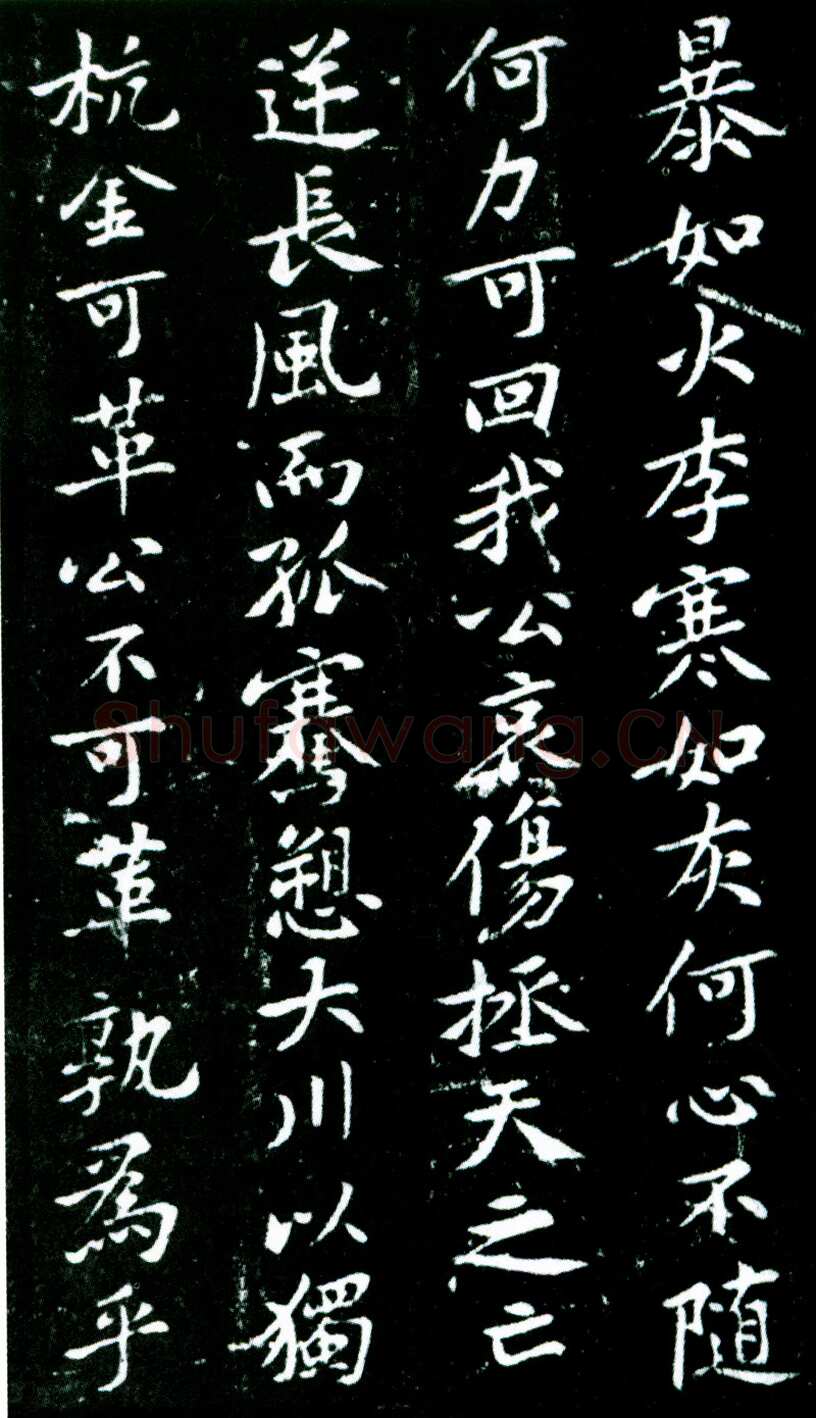 暴如火李寒如灰何心不隨
何力可回我公哀傷拯天之亡
逆長風而孤騫愬大川以獨
杭金可革公不可革孰爲乎
Shufawang.CN